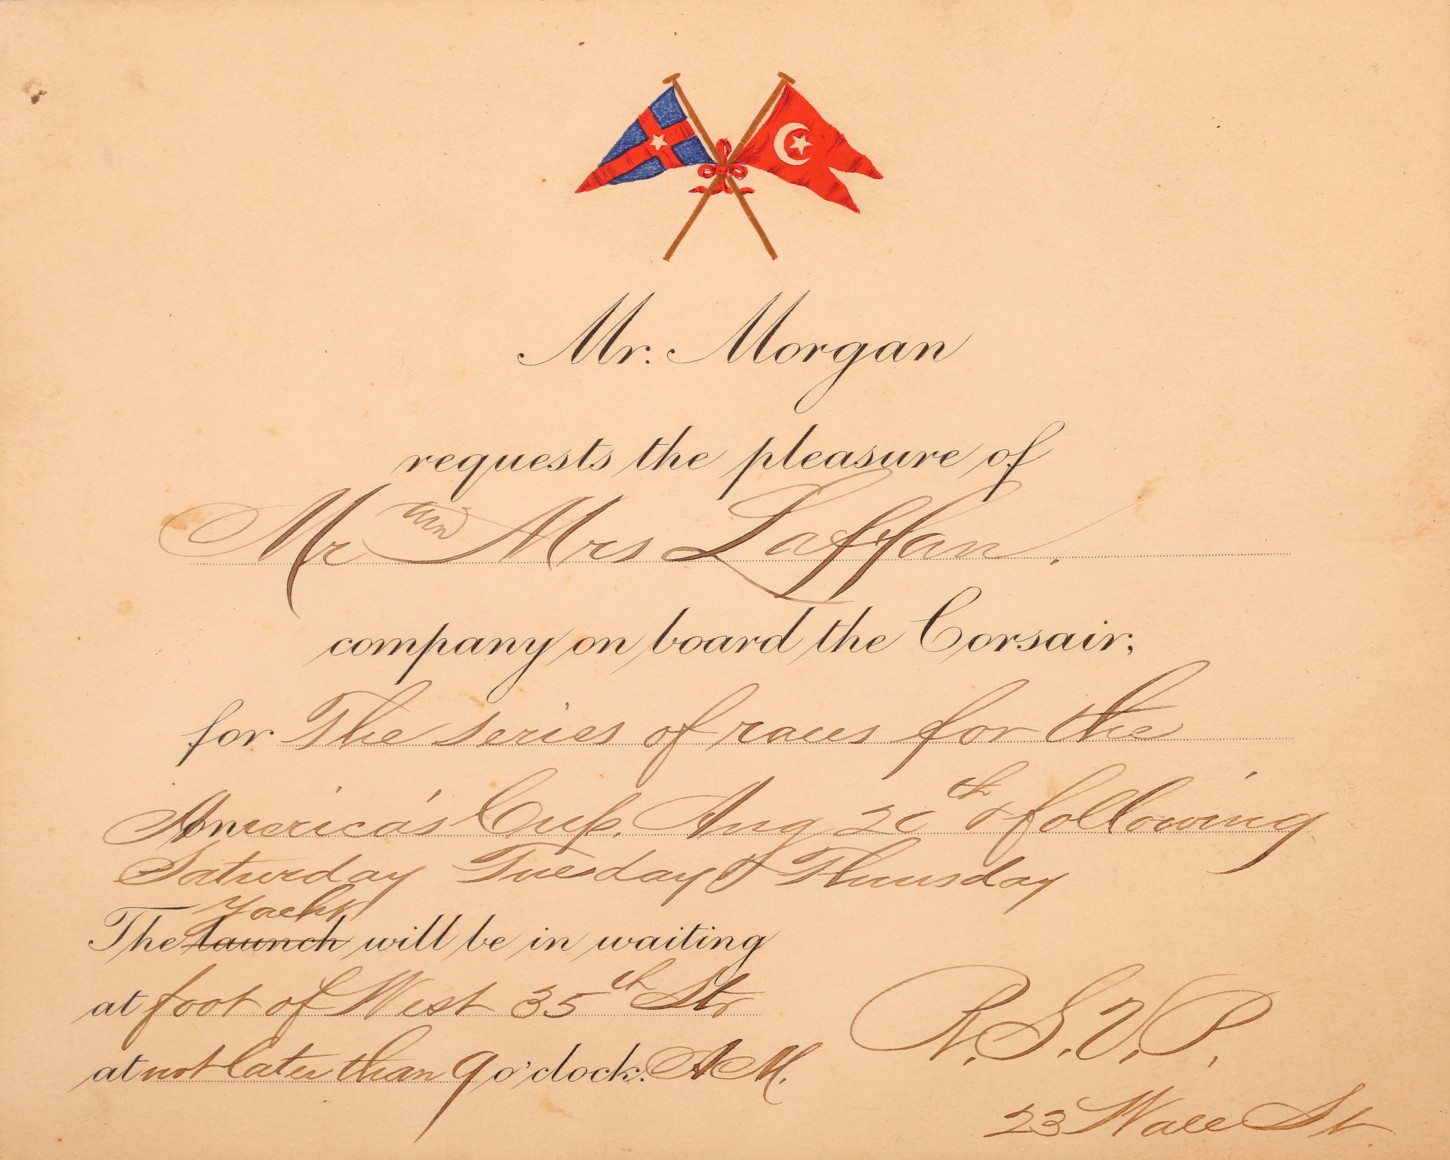 Mr. Morgan
requests the pleasure of
Mr and Mrs Laffan.
company on board the Corsair,
for The series of races for the
America's Cup. Aug 20th & following
Saturday Tuesday & Thursday
Yacht
The launch will be in waiting
at foot of West 35th Str
at not later than 9 o'clock. A M.
R. S. V. P.
23 Wall St.